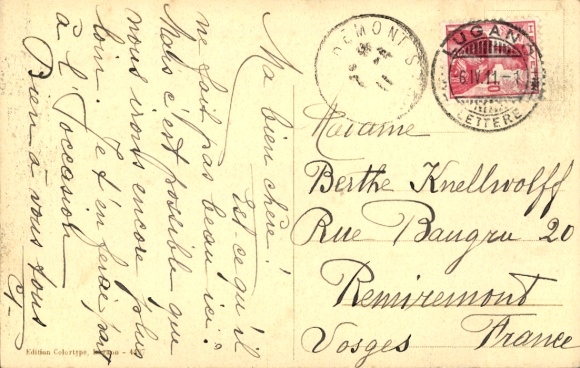 Ma bien chère!
Est-ce qu'il
ne fait pas beau ici?
Mais c'est possible que
nous irons encore plus
loin. Je t'en ferai part
à l'occasion.
Bien à vous tous
LUGANO
6.IV.11.-1
LETTERE
Madame
Berthe Knellwolff
Rue Baugru 20
Remiremont
Vosges France
Edition Colortype, Lugano